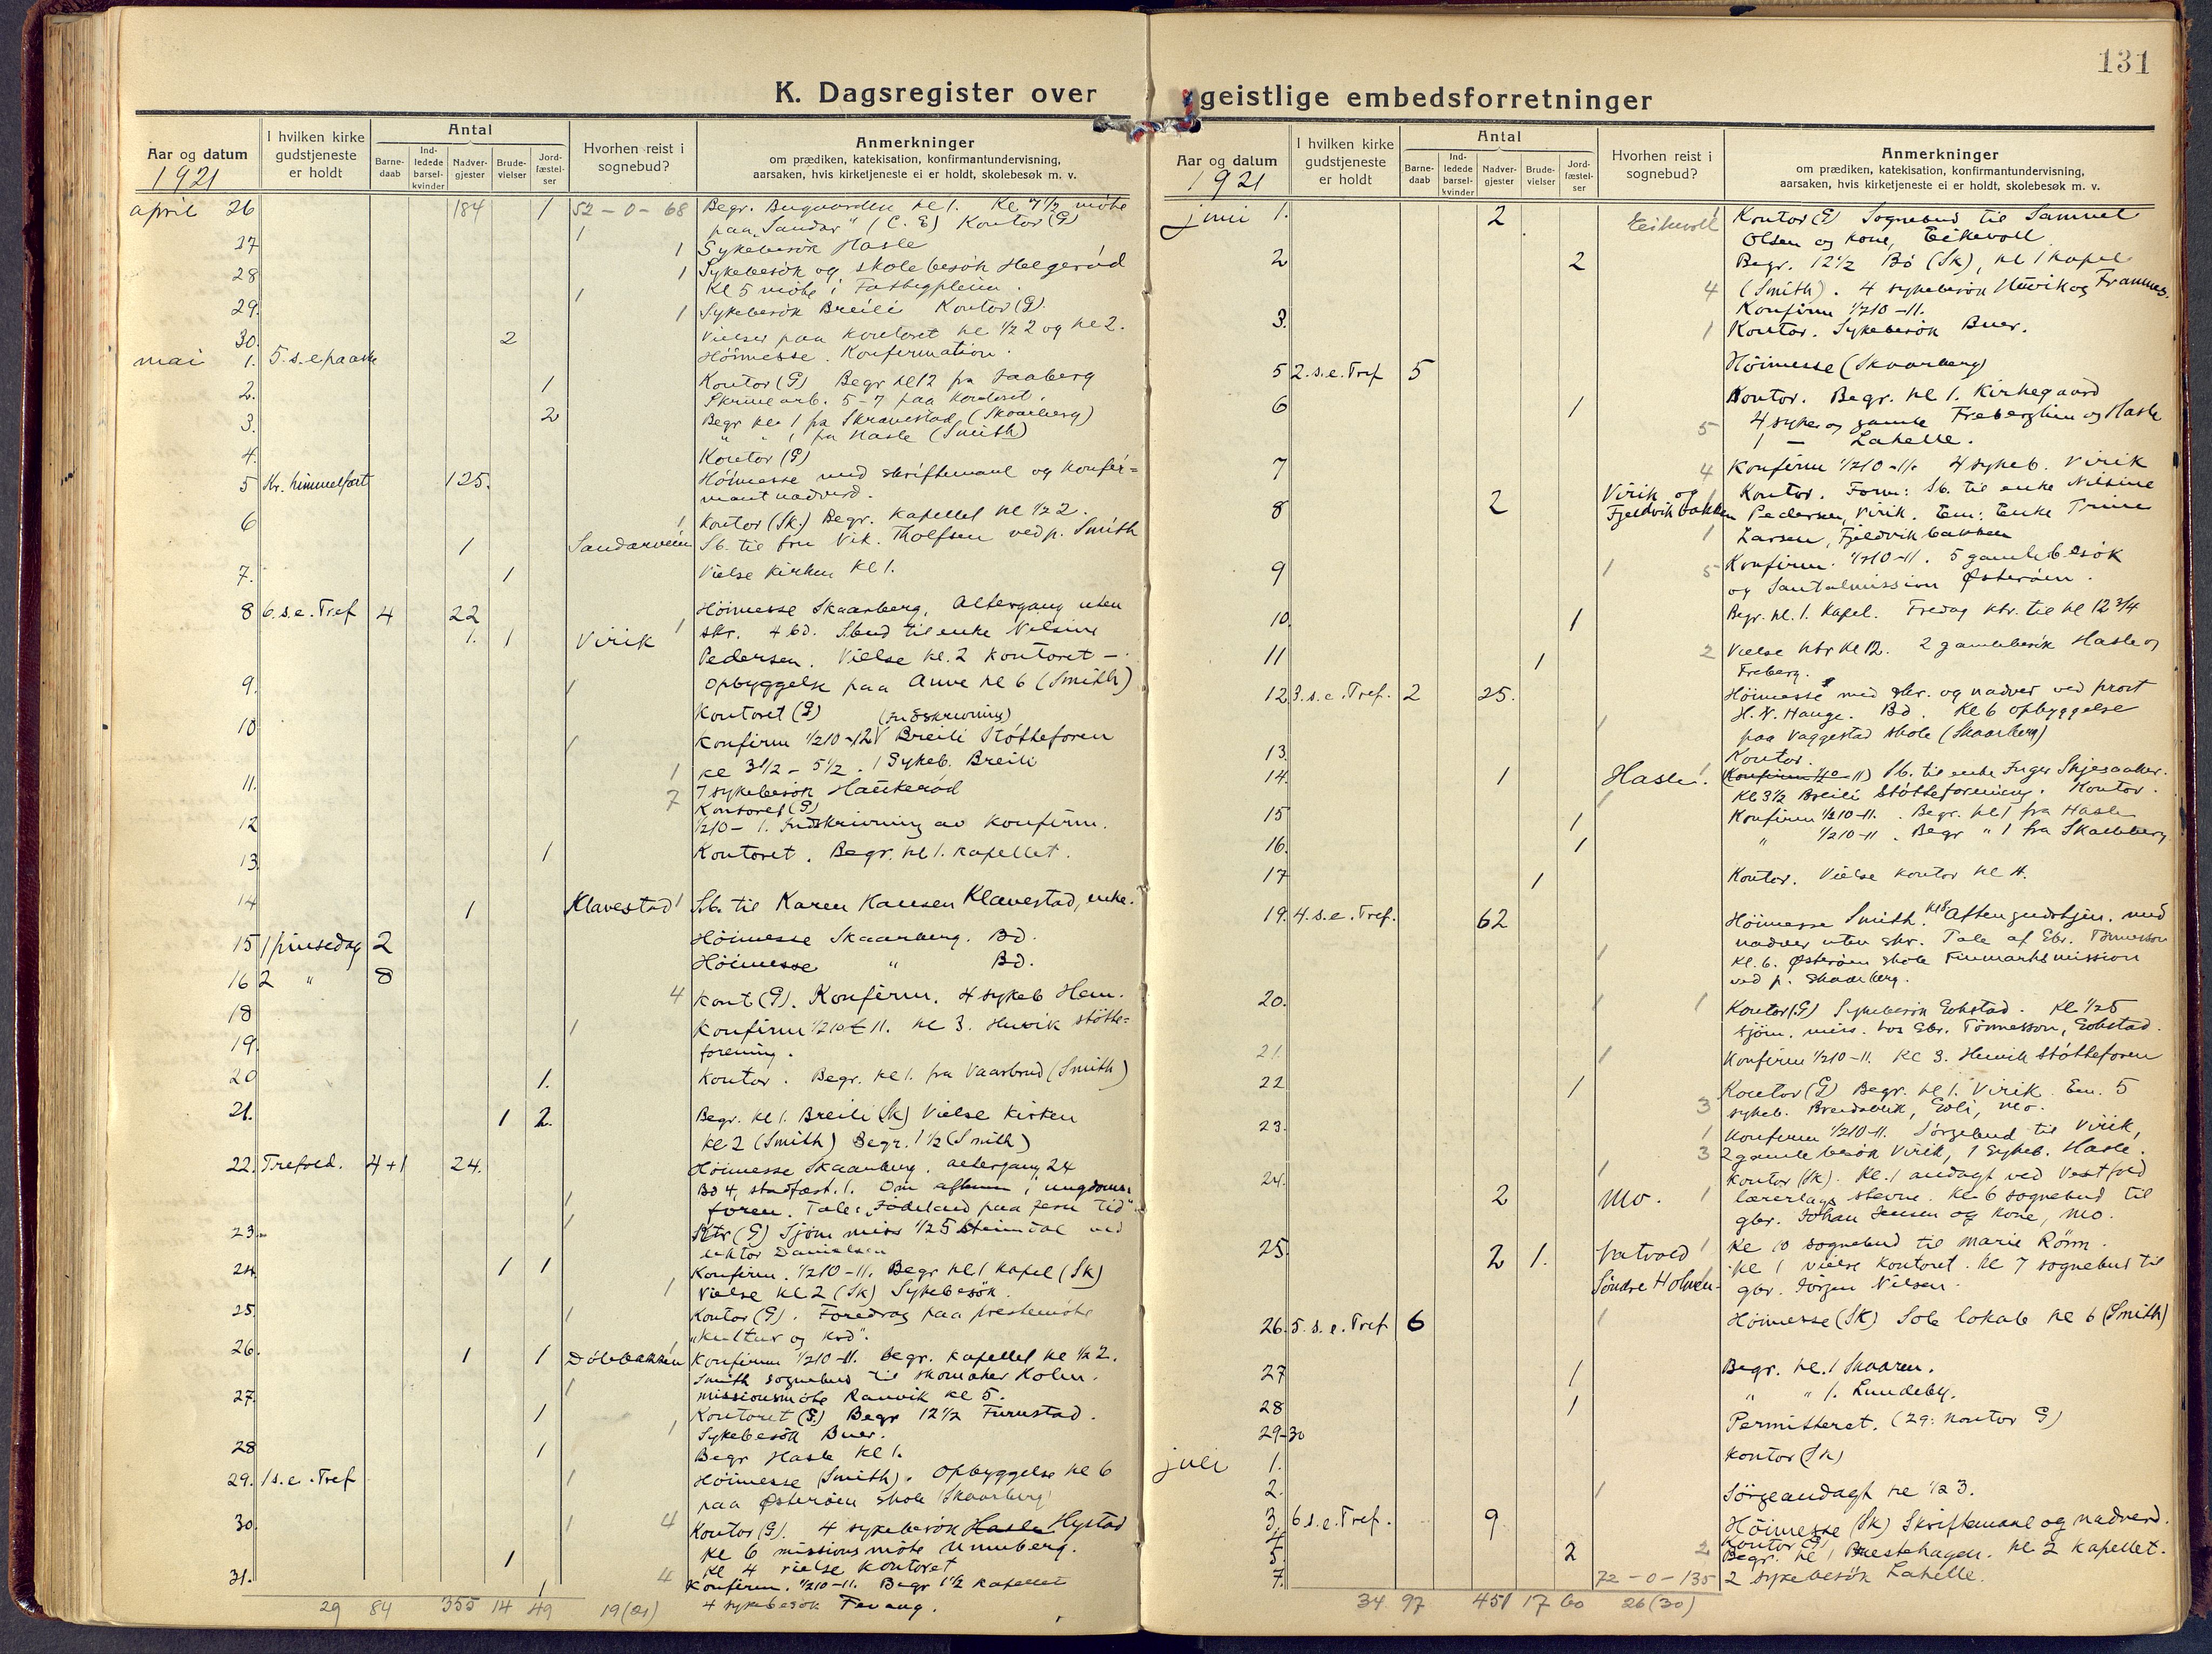 131
K. Dagsregister over geistlige embedsforretninger
Aar og datum
1921
I hvilken kirke gudstjeneste er holdt
Antal
Barne-daab
Ind-ledede barsel-kvinder
Nadver-gjester
Brude-vielser
Jord-fæstel-ser
Hvorhen reist i sognebud?
Anmerkninger
om prædiken, katekisation, konfirmantundervisning,
aarsaken, hvis kirketjeneste ei er holdt, skolebesøk m. v.
april 26 184 1 52-0-68 Begr. kl 1. Kl 7½ möte
1 paa "Sandar" (C. E) Kontor (G)
27 1 Sykebesök Hasle
28 1 Sykebesök og skolebesök Helgeröd
1 Kl 5 möte i
29. 1 Sykebesök Breili Kontor (G).
30. 2 Vielser paa kontoret kl ½2 og kl 2.
mai 1. 5. s. e paaske Höimesse. Konfirmation.
2. 1 Kontor (G) Begr kl 12 fra Haaberg
5-7 paa kontoret.
3. 2 Begr kl 1 fra Skravestad (Skaarberg)
" " 1 fra Hasle (Smith)
4. Kontor (G)
5 Kr. himmelfart 125. Höimesse med skriftemaal og konfir=
mant nadverd.
6 1 Kontor (Sk.) Begr. kapellet kl ½2.
1 Sandarveien Sb. til fru Vik. Tholfsen ved p. Smith
7. 1 Vielse kirken kl 1.
8 6. s. e. Tref 4 22 Höimesse Skaarberg. Altergang uten
1. 1 Virik 1 skr. 4 bd. S.bud til enke Nilsine
Pedersen. Vielse kl. 2 kontoret -.
9. 1 Opbyggelse paa Anve kl 6 (Smith)
Kontoret (G) (Indskrivning)
10 1 Konfirm ½10-12 Breili Stötteforen
1 kl 3½-5½. 1 Sykeb. Breili
11. 7 7 sykebesök Haukeröd
Kontoret (G)
12 ½10-1. Indskrivning av konfirm.
13. 1 Kontoret. Begr. kl 1. kapellet.
14 1 Klavestad 1 S.b. til Karen Hansen Klavestad, enke.
15 1 pinsedag 2 Höimesse Skaarberg. Bd.
16 2 " 8 Höimesse " Bd.
18 4 Kont (G). Konfirm. 4 sykeb Hem.
19. 1 Konfirm ½10-11. kl 3. Huvik stötte=
forening.
20 1. Kontor. Begr. kl 1. fra Vaarbrud (Smith)
21. 1 2. Begr. kl 1. Breili (Sk) Vielse kirken
kl 2 (Smith) Begr. 1½ (Smith)
22. Trefold. 4+1 24. Höimesse Skaarberg. altergang 24
1 Bd 4, stadfæst. 1. Om aftenen i "ungdoms=
foren. Tale: "Födeland paa Jesu tid"
23. 1 Ktr (G) Sjöm miss ½5 Heimdal ved
lektor Danielsen
24 1 1 Konfirm. ½10-11. Begr kl 1 kapel (Sk)
1 Vielse kl 2 (Sk) Sykebesök.
25. 1 Kontor (G). Foredrag paa prestemöte
"Kultur og ord".
26. 1 1 Dölebakken 1 Konfirm ½10-11. Begr. kapellet kl ½2.
Smith sognebud til skomaker Holm.
27. 1 missionsmöte Ranvik kl 5.
1 Kontoret (G.) Begr 12½ Furustad.
1 Sykebesök Buer.
28 1 Begr Hasle kl 1.
29. 1 s. e. Tref 1 Höimesse (Smith). Opbyggelse kl 6
paa Österöen skole (Skaarberg)
30. 1 4 Kontor (G). 4 sykebesök Hasle Hystad
kl 6 missionsmöte Unneberg.
1 Kl 4 vielse kontoret
31. 1 4 Konfirm. ½10-11. Begr 1½ kapellet
4 sykebesök Fevang.
29 84 355 14 49 19(21)
Aar og datum
1921
I hvilken kirke gudstjeneste er holdt
Antal
Barne-daab
Ind-ledede barsel-kvinder
Nadver-gjester
Brude-vielser
Jord-fæstel-ser
Hvorhen reist i sognebud?
Anmerkninger
om prædiken, katekisation, konfirmantundervisning,
aarsaken, hvis kirketjeneste ei er holdt, skolebesøk m. v.
juni 1. 2 Eikevoll 1 Kontor (G) Sognebud til Samuel
Olsen og kone, Eikevoll
2 2 Begr. 12½ Bö (Sk), kl 1 kapel
4 (Smith). 4 sykebesök Huvik og Framnes.
Konfirm ½10-11.
3. 1 Kontor. Sykebesök Buer.
5 2. s. e. Tref 5 Höimesse (Skaarberg)
6 1 Kontor. Begr. kl 1. Kirkegaard
5 4 syke og gamle Freberglien og Hasle
1 - Lahelle.
7 4 Konfirm ½10-11. 4 sykeb. Virik
8 2 Virik og Fjeldvikbakken Kontor. Form: Sb. til enke Nilsine
Pedersen, Virik. Em: Enke Trine
1 Larsen, Fjeldvikbakken
9 1 5 Konfirm. ½10-11. 5 gamlebesök
og Santalmission Østeröen.
10. 1 Begr. kl. 1. Kapel. Fredag ktr. til kl 12¾
11 1 2 Vielse ktr kl 12. 2 gamlebesök Hasle og
Freberg.
12 3. s. e. Tref. 2 25. Höimesse med skr. og nadver ved prost
H. N. Hauge. Bd. Kl 6 opbyggelse
1 paa Vaggestad skole (Skaarberg)
13. Kontor.
14. 1 Hasle 1. (Konfirm ½10-11) Sb. til enke Inger Skjesaaker.
1 Kl 3½ Breili Stötteforening. Kontor.
15 1 Konfirm ½10-11. Begr. kl 1 fra Hasle
16. 1 " ½10-11. Begr " 1 fra Skaabberg
17 1 Kontor. Vielse kontor kl 11.
19. 4. s. e. Tref. 62 Höimesse Smith. Kl 8 Aftengudstjen. med
nadver uten skr. Tale af Ebr. Tönnesson
1 Kl. 6. Østeröen skole Finmarksmission
ved p. Skaarberg.
20. 1 1 Kontor (G) Sykebesök Eokstad. Kl ½5
sjöm. miss. hos Ebr. Tönnesson, Eokstad.
21. 1 Konfirm ½10-11. Kl 3. Huvik Stötteforen
22 1 Kontor (G) Begr. kl 1. Virik. Em. 5
3 sykeb. Breidablik, Eoli, Mo.
23. 1 Konfirm ½10-11. Sörgebud til Virik,
3 2 gamlebesök Virik, 1 Sykeb. Hasle.
24. 1 Kontor (Sk). Kl. 1 andagt ved Vestfold
2 Mo. 1 lærerlags stevne. Kl 6 sognebud til
gbr. Johan Jensen og kone, Mo.
25. 2 1. 1 Kl 10 sognebud til Marie Römm.
Kl 1 vielse kontoret. Kl 7 sognebud til
Söndre Holmen gbr. Jörgen Nilsen.
26. 5. s. e. Tref 6 1 Höimesse (Sk) Sole lokale kl 6 (Smith)
27 1 Begr. kl. 1 Skaaren.
28 1 " " 1. Lundeby.
29-30 Permitteret. (29: kontor G)
juli 1. Kontor (Sk)
2. 1 Sörgeandagt kl ½3.
3. 6 s. e. Tref. 9 Höimesse (Sk) Skriftemaal og nadverd.
4 Kontor (G)
5. 2 2 Begr. kl 1 Prestehagen. kl 2 kapellet.
7. 72-0-135 2 sykebesök Lahelle.
34 97 451 17 60 26(30)